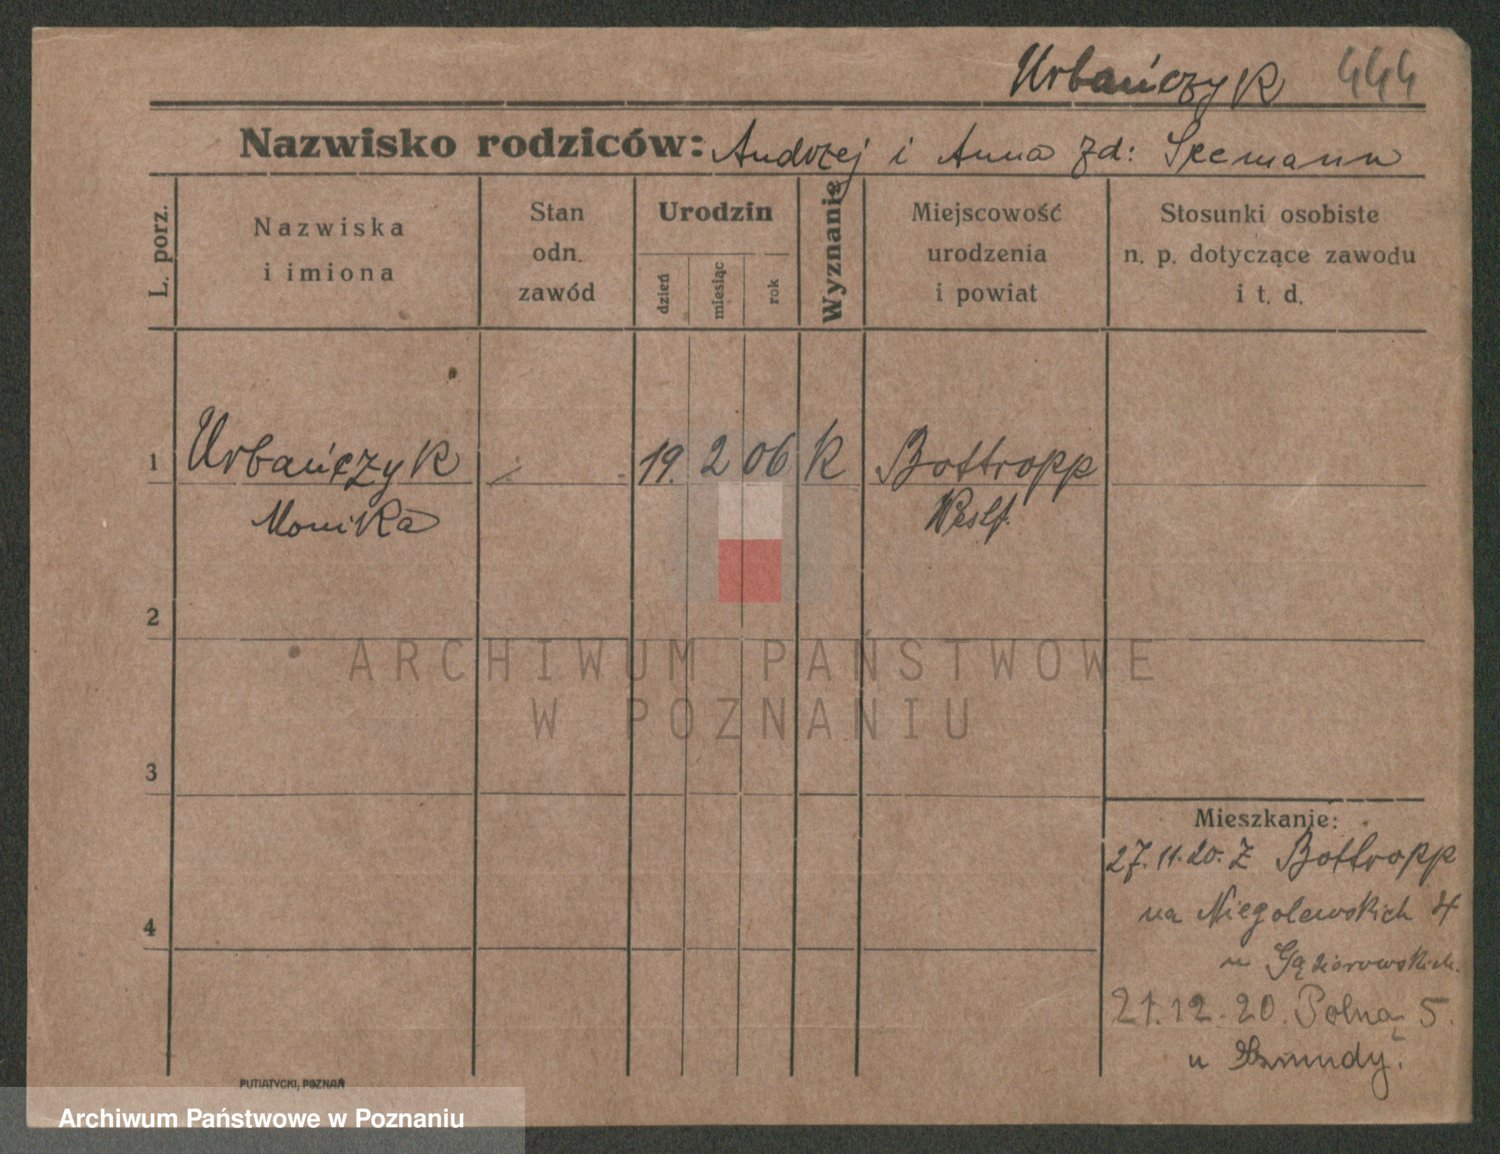 Urbańczyk 444
Nazwisko rodziców: Andrzej i Anna zd: Seemann
L. porz.
Nazwiska
i imiona
Stan
odn.
zawód
Urodzin
dzień
miesiąc
rok
Wyznanie
Miejscowość
urodzenia
i powiat
Stosunki osobiste
n. p. dotyczące zawodu
i t. d.
1 Urbańczyk 19. 2 06 K Bottropp
Monika Westf.
2
ARCHIWUM PAŃSTWOWE
W POZNANIU
3
Mieszkanie:
27.11.20. z Bottropp
na Niegolewskich 4
u Gąsiorowskich.
4
21.12.20. Polną 5.
u
PUTIATYCKI, POZNAŃ
Archiwum Państwowe w Poznaniu